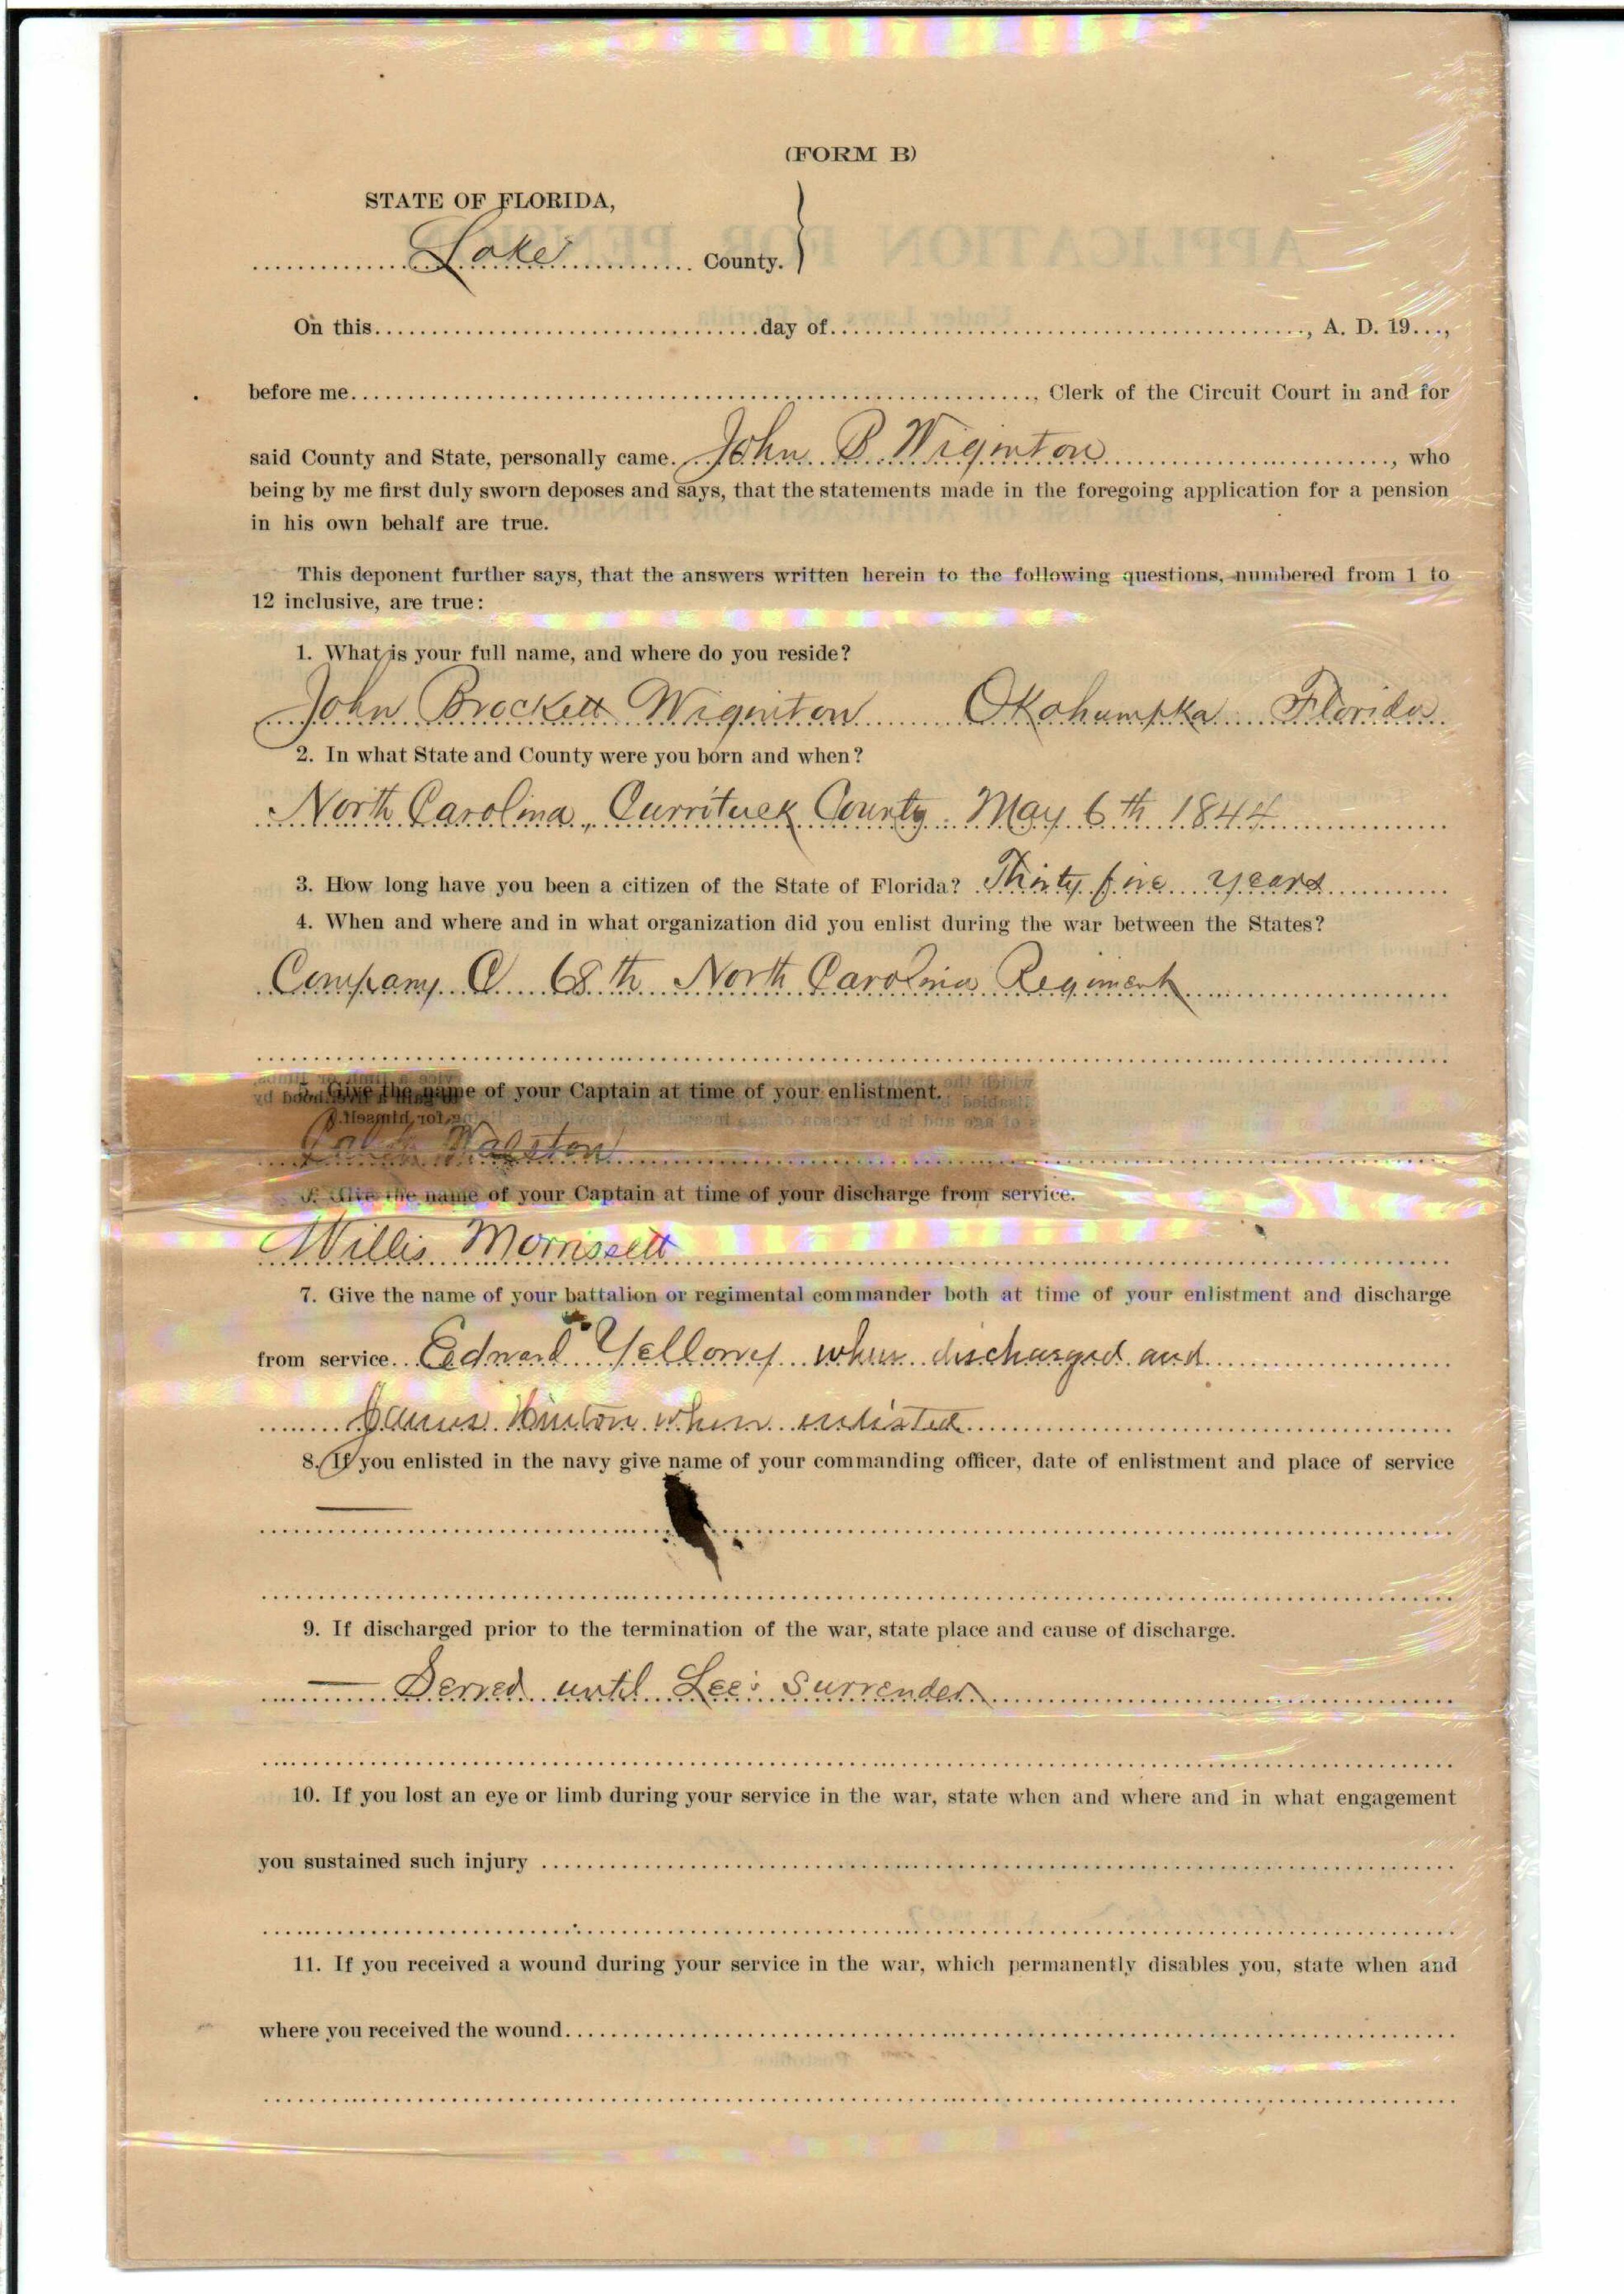 (FORM B)
STATE OF FLORIDA,
Lake County.
On this day of , A. D. 19...,
before me , Clerk of the Circuit Court in and for
said County and State, personally came John B Wiginton , who
being by me first duly sworn deposes and says, that the statements made in the foregoing application for a pension
in his own behalf are true.
This deponent further says, that the answers written herein to the following questions, numbered from 1 to
12 inclusive, are true:
1. What is your full name, and where do you reside?
John Brockett Wiginton Okahumpka Florida
2. In what State and County were you born and when?
North Carolina, Currituck County May 6th 1844
3. How long have you been a citizen of the State of Florida? Thirty five years
4. When and where and in what organization did you enlist during the war between the States?
Company 68th North Carolina Regiment
5. Give the name of your Captain at time of your enlistment.
Walston
6. Give the name of your Captain at time of your discharge from service.
Willis Morrissett
7. Give the name of your battalion or regimental commander both at time of your enlistment and discharge
from service Edward Yellowy when discharged and
James Hinton when enlisted
8. If you enlisted in the navy give name of your commanding officer, date of enlistment and place of service
9. If discharged prior to the termination of the war, state place and cause of discharge.
Served until Lee's Surrender
10. If you lost an eye or limb during your service in the war, state when and where and in what engagement
you sustained such injury
11. If you received a wound during your service in the war, which permanently disables you, state when and
where you received the wound